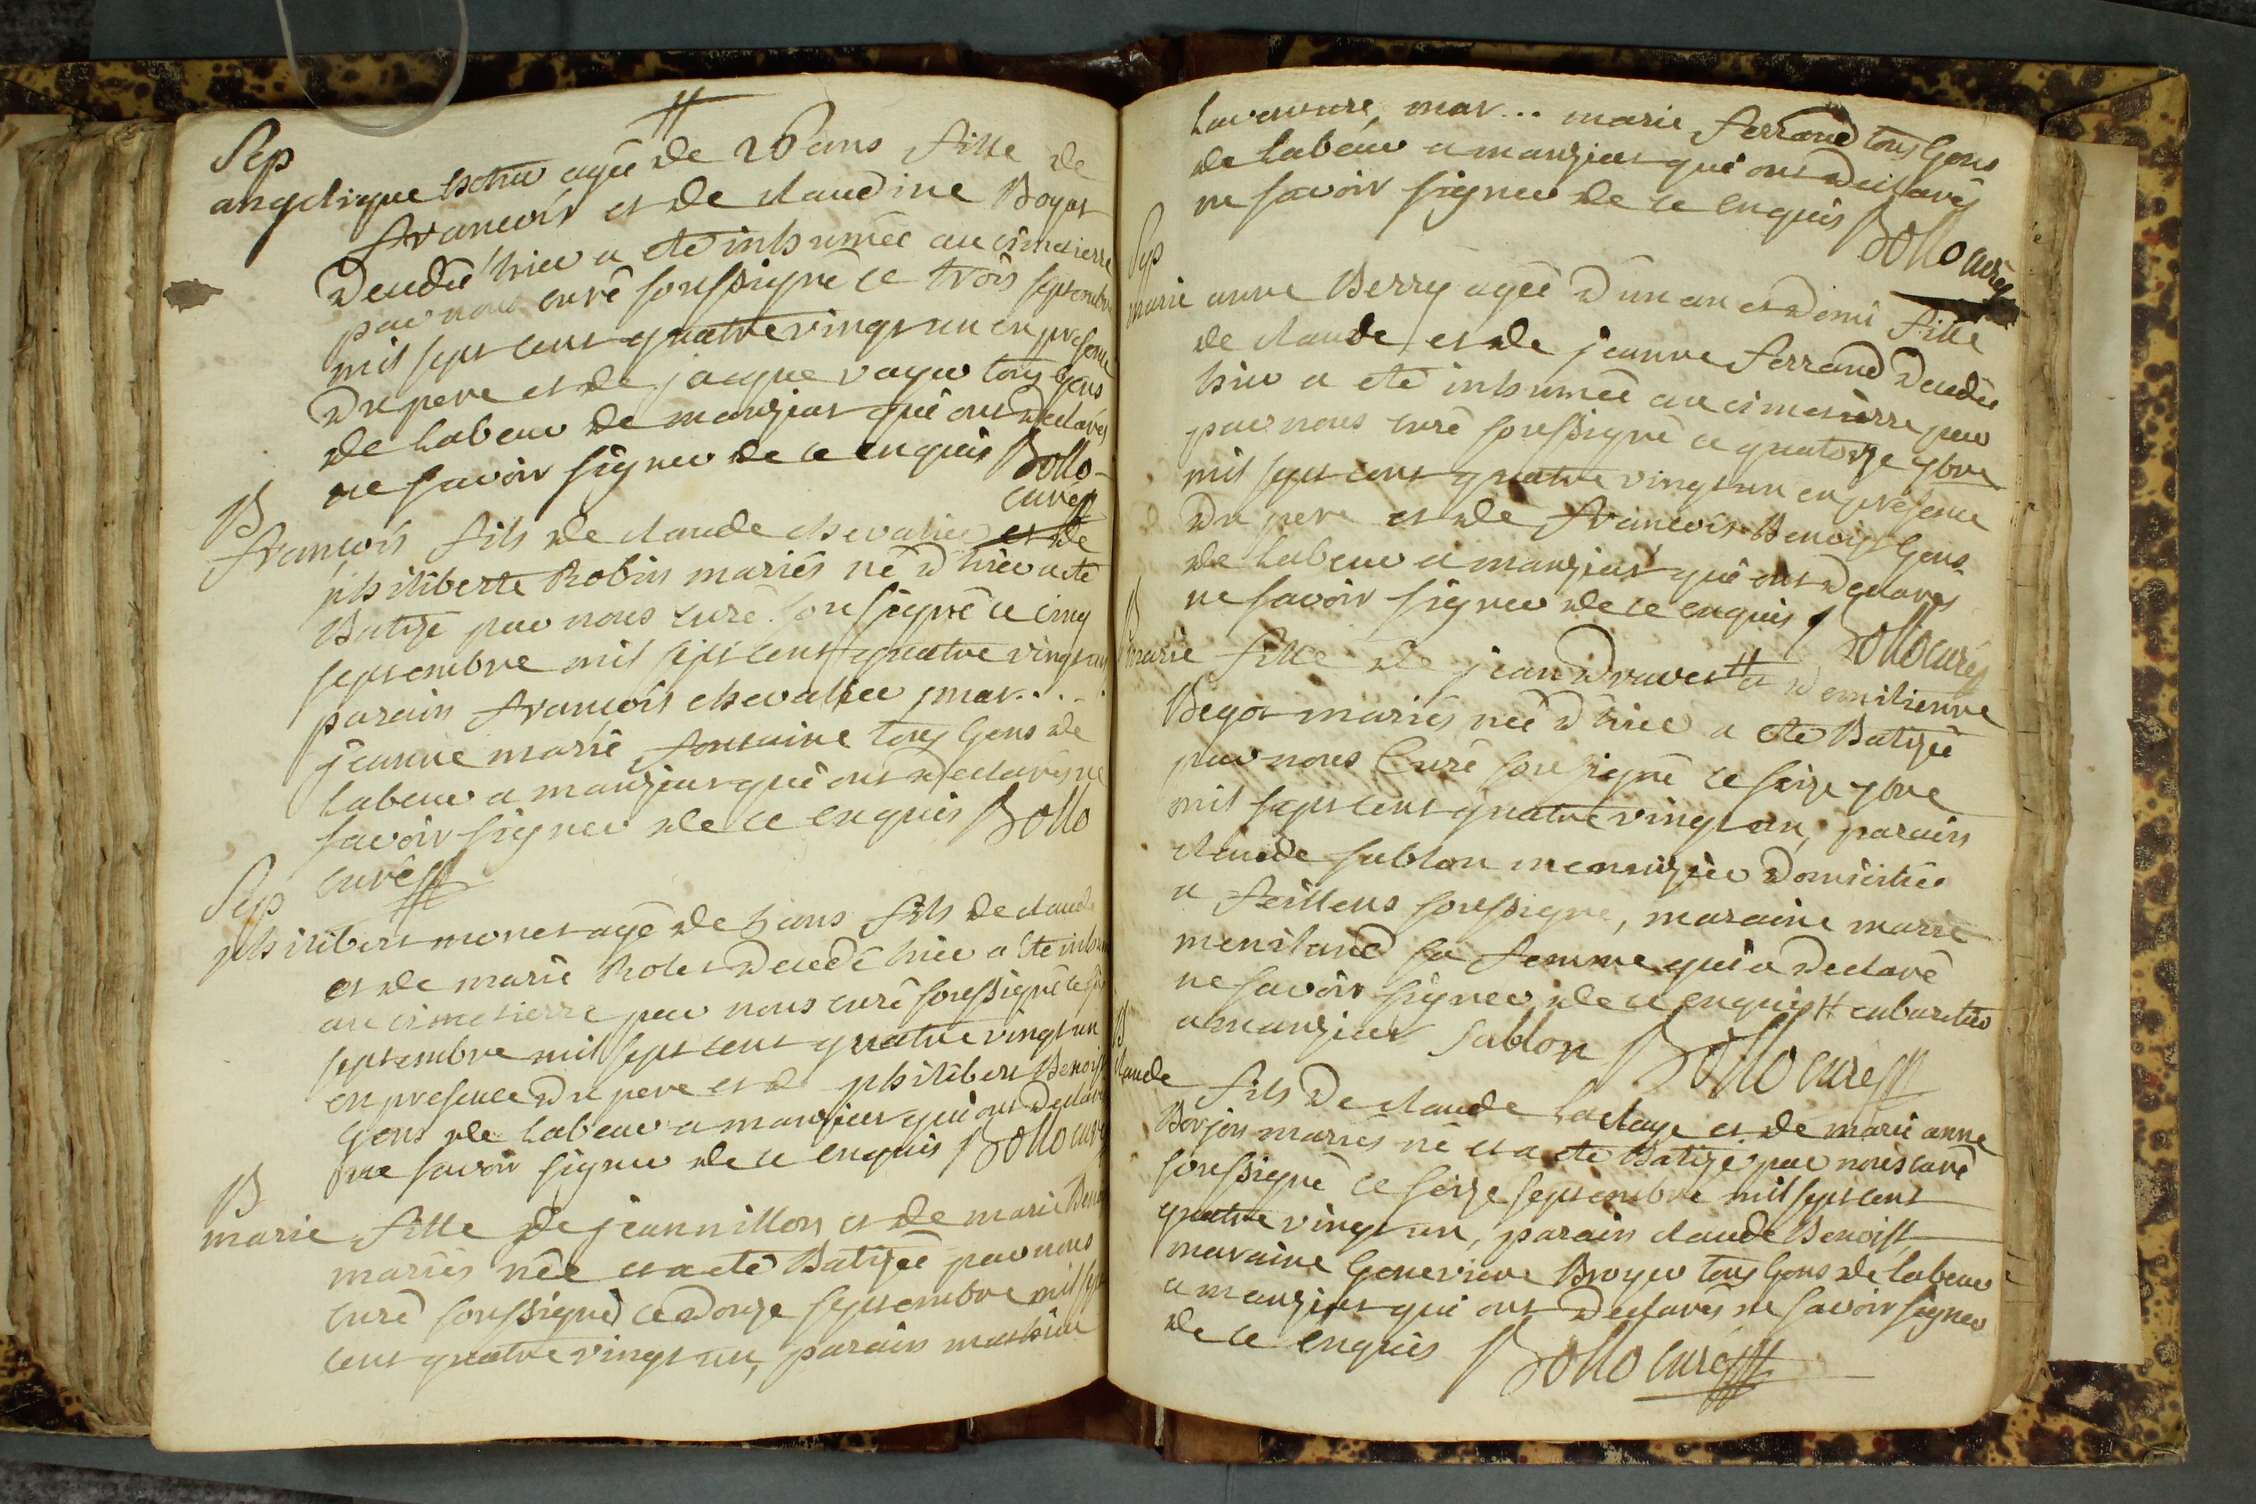 Sep
angelique agée de 26 ans fille de
francois et de claudine Boyat
decedée hier a eté inhumée au cimetierre
par nous curé soussigné ce trois septembre
mil sept cent quatre vingt un en presence
du pere et de jacque voyer tous gens
de labeur de manziat qui ont declarés
ne savoir signer de ce enquis Bollo
curé
B
françois fils de claude chevalier et de
philiberte Robin mariés né d'hier a eté
Batizé par nous curé soussigné ce cinq
septembre mil sept cent quatre vingt un
parain francois chevalier, mar...
jeanne marie fontaine tous gens de
labeur a manziat qui ont declarés ne
savoir signer de ce enquis Bollo
curé
Sep
philibert monet agé de ans fils de claude
et de marie Rolet decedé hier a eté inhumé
au cimetierre par nous curé soussigné ce
septembre mil sept cent quatre vingt un
en presence du pere et de philibert Benoist
gens de labeur a manziat qui ont declaré
ne savoir signer de ce enquis Bollo curé
B
marie fille de jean nillon et de marie
mariés née et a eté Batizée par nous
curé soussigné ce douze septembre mil sept
cent quatre vingt un, parain mathieu
laventure, mar... marie ferrand tous gens
de labeur a manziat qui ont declarés
ne savoir signer de ce enquis Bollo curé
Sep
marie anne Berry agée d'un an et demi fille
de claude et de jeanne ferrand decedée
hier a eté inhumée au cimetierre par
par nous curé soussigné ce quatorze 7bre
mil sept cent quatre vingt un en présence
du pere et de francois Benoist gens
de labeur a manziat qui ont declarés
ne savoir signer de ce enquis Bollo curé
B
marie fille de jean dravert # et d'emilienne
Begot mariés née d'hier a eté Batizée
par nous Curé soussigné ce seize 7bre
mil sept cent quatre vingt un, parain
claude sablon menuizier domicilié
a feillens soussigné, maraine marie
meniland sa femme qui a declaré
ne savoir signer de ce enquis # cabaretier
a manziat Sablon Bollo curé
B
claude fils de claude laclaye et de marie anne
Borjon mariés né et a eté Batizé par nous curé
soussigné ce seize septembre mil sept cent
quatre vingt un, parain claude Benoist
maraine Genevieve Broyer tous gens de labeur
a manziat qui ont declarés ne savoir signer
de ce enquis Bollo curé